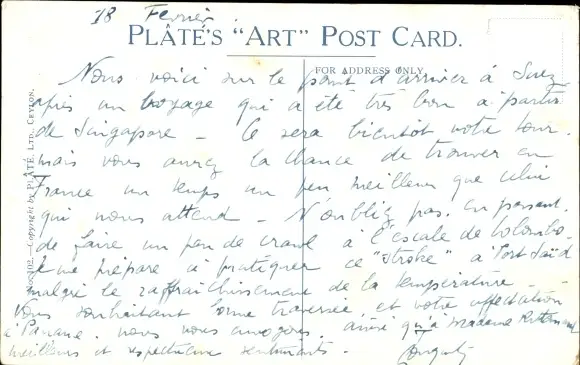 18 Fevrier.
PLÂTÉ'S "ART" POST CARD.
FOR ADDRESS ONLY
Copyright by PLÂTÉ LTD., CEYLON.
Nous voici sur le point d'arriver à Suez
après un voyage qui a été très bon à partir
de Singapore - Ce sera bientôt votre tour.
mais vous aurez la chance de trouver en
France un temps un peu meilleur que celui
qui nous attend - N'oubliez pas, en passant,
de faire un peu de crawl à l'escale de Colombo.
Je me prépare à pratiquer ce "stroke" à Port Saïd
malgré le raffraichissement de la température -
Vous souhaitant bonne traversée, et votre affectation
à nous vous envoyons, ainsi qu'à Madame
meilleurs et respectueux sentiments.